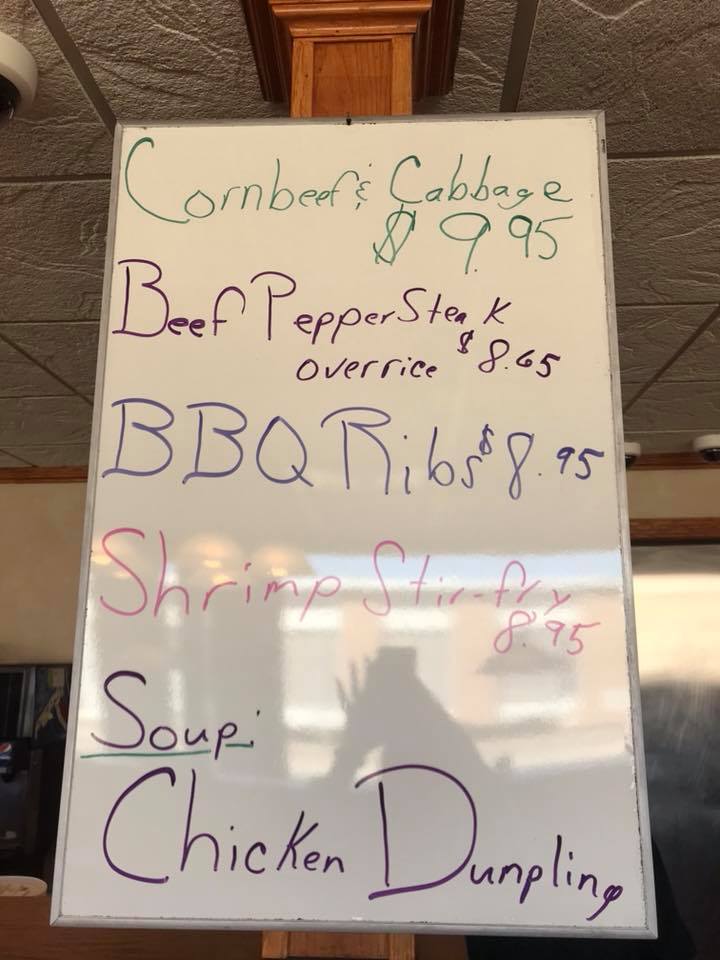 Cornbeef & Cabbage
$ 9.95
Beef Pepper Steak
over rice $8.65
BBQ Ribs $8.95
Shrimp Stir-fry
8.95
Soup:
Chicken Dumpling